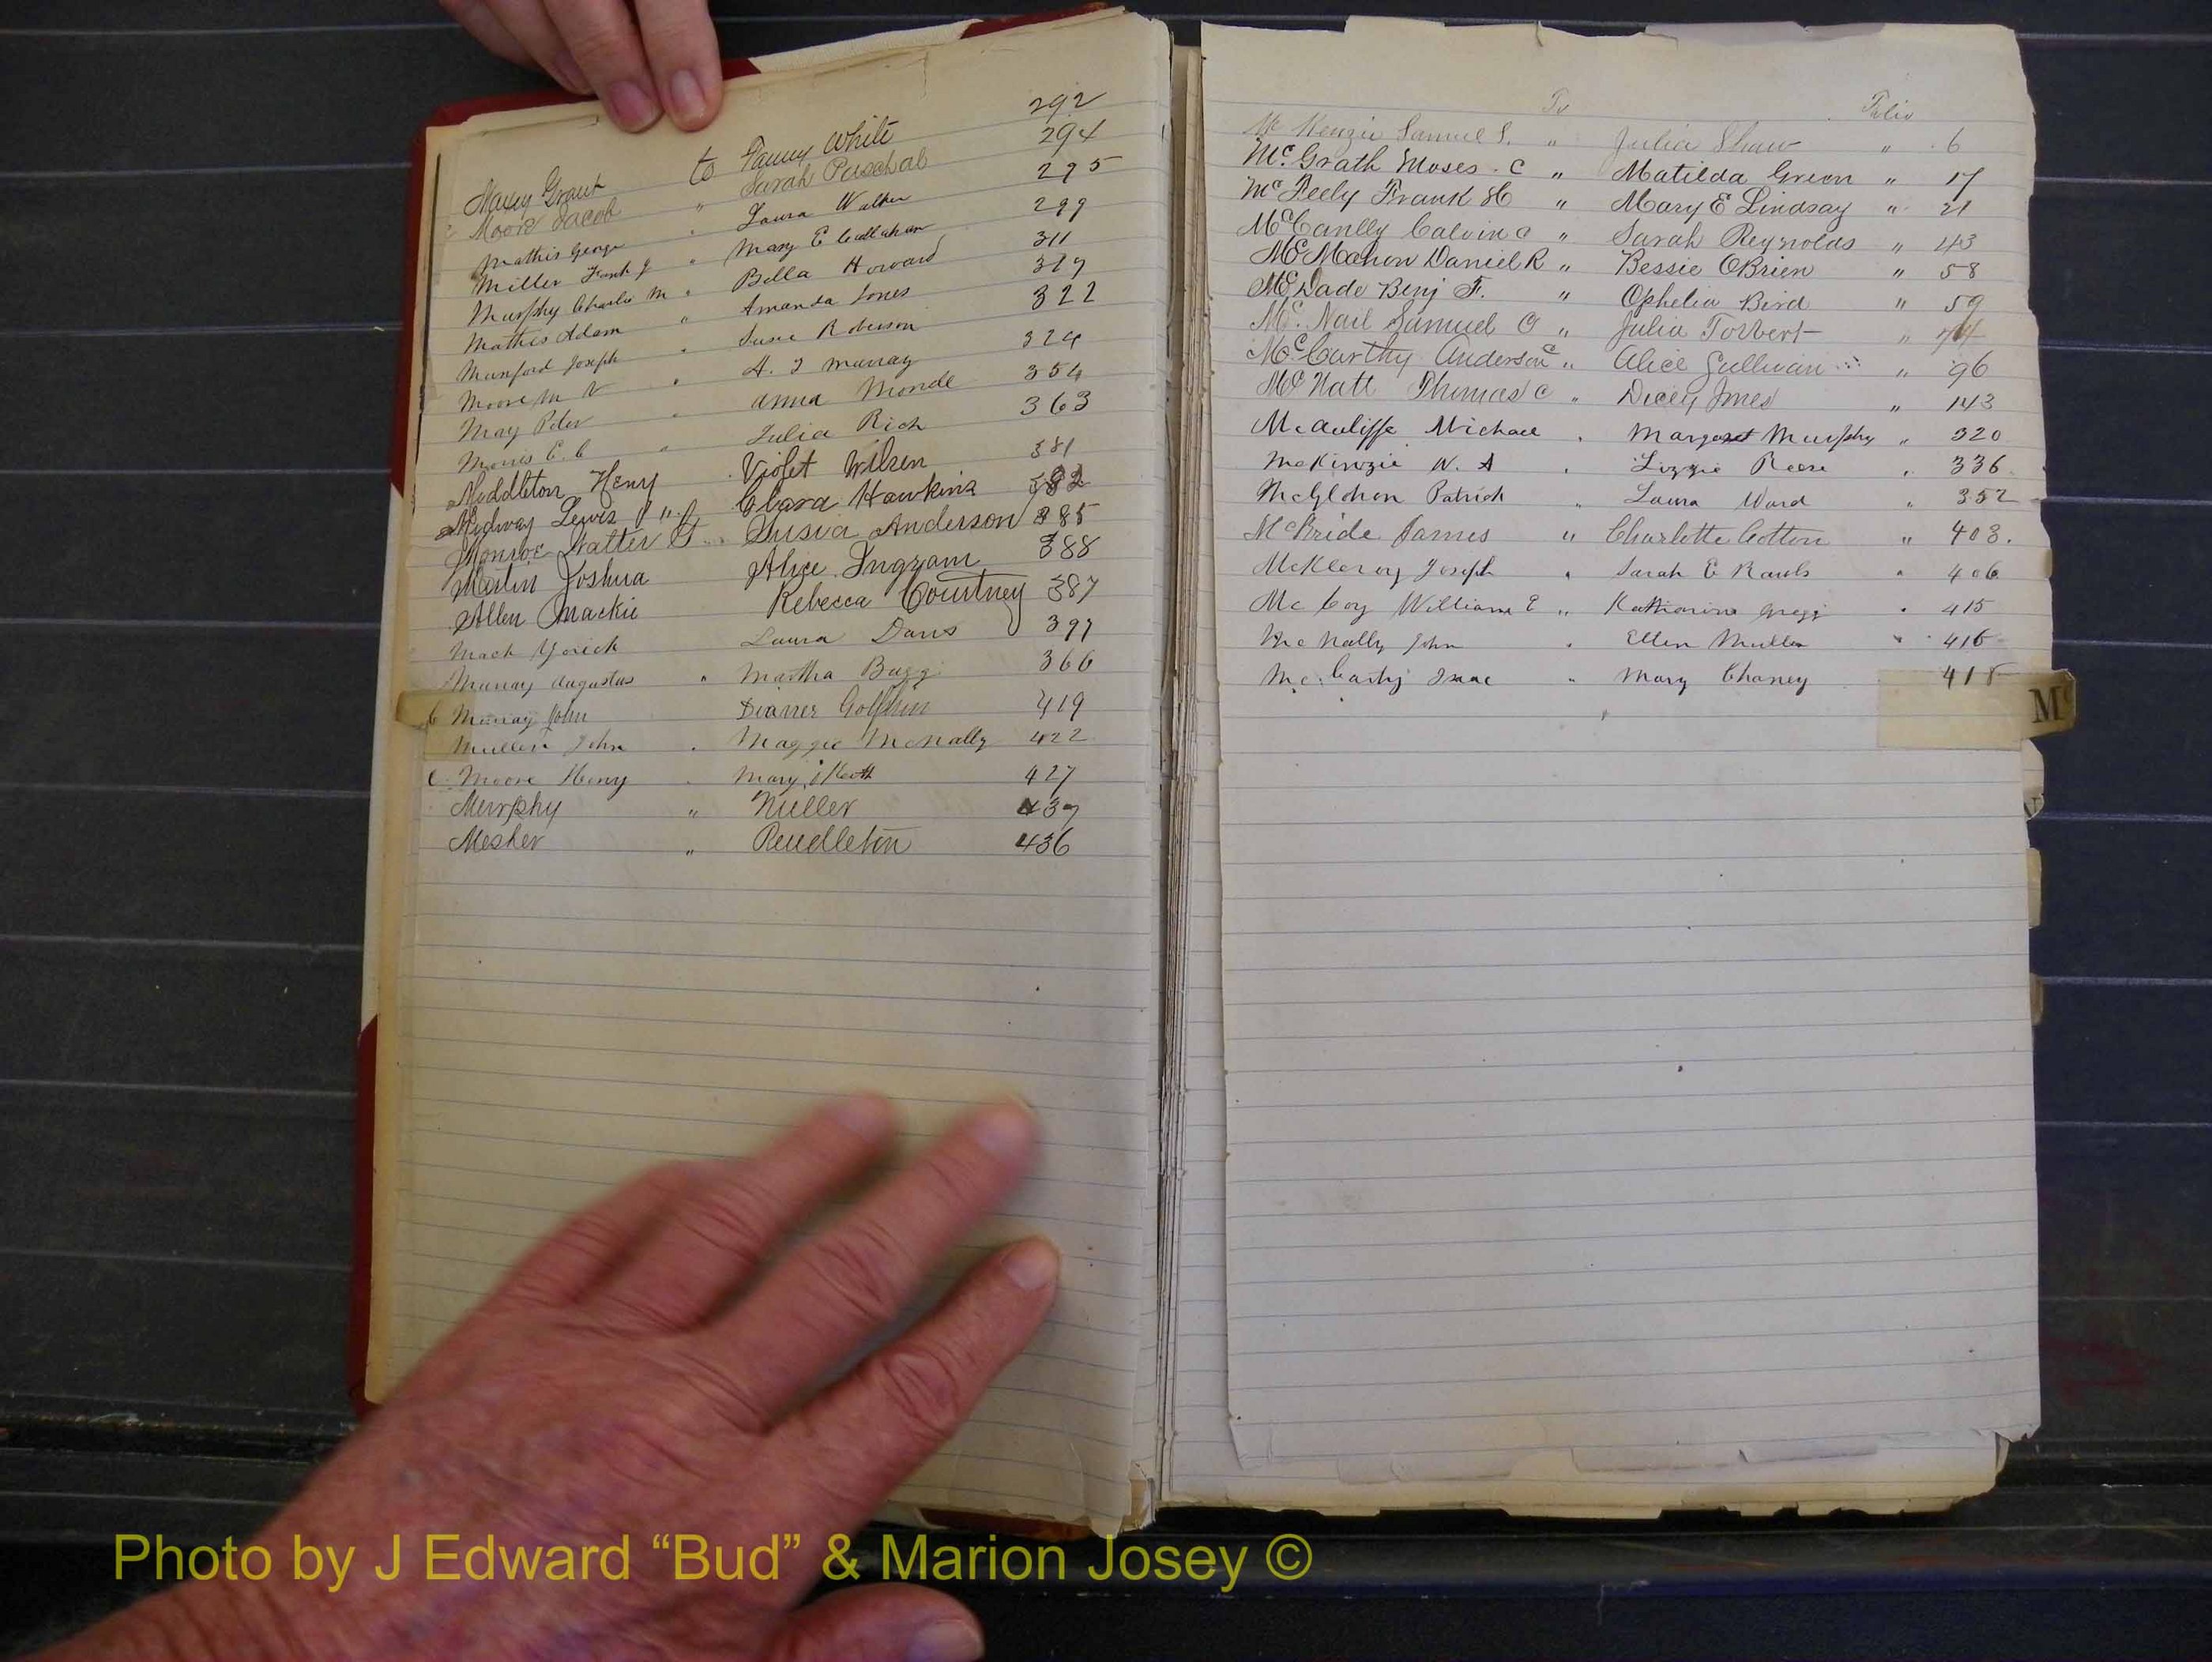 Maxey Grant to Fanny White 292
Moore Jacob " Sarah Paschal 294
Mathis George " Laura Walker 295
Miller Frank J " Mary E Callahan 299
Murphy Charlie M " Bella Howard 311
Mathis Adam " Amanda Jones 317
Munford Joseph " Susie Roberson 322
Moore M V " A. J Murray 324
May Peter " Anna Monde 354
Morris C. C " Julia Rich 363
Middleton Henry Violet Wilson 381
Medway Lewis Clara Hawkins 382
Monroe Walter Susia Anderson 385
Martin Joshua Alice Ingram 388
Allen Mackie Rebecca Courtney 387
Mack Yorick Laura Davis 397
Murray Augustus " Martha Bugg 366
C Murray John Dianer Golphin 419
Mullen John " Maggie McNally 422
C. Moore Henry " Mary Keott 427
Murphy " Miller 437
Mesher " Pendleton 436
To Folio
McKenzie Samuel S. " Julia Shaw " 6
McGrath Moses. C " Matilda Green " 17
McFeely Frank H " Mary E Lindsay " 21
McCanlly Calvin C " Sarah Reynolds " 43
McMahon Daniel R " Bessie OBrien " 58
McDade Benj F. " Ophelia Bird " 59
Mc. Nail Samuel C " Julia Torbert " 74
McCarthy Anderson C " Alice Sullivan " 96
McNatt Thomas C " Dicey Jones " 143
McAuliffe Michael " Margaret Murphy " 320
McKinzie W. A " Lizzie Reese " 336
McGlohon Patrick " Laura Ward " 352
McBride James " Charlotte Cotton " 403.
McKleroy Joseph " Sarah E Rawls " 406
McCoy William E " Katharine Gregg " 415
McNally John " Ellen Mullen " 416
McCarty Isaac " Mary Chaney 418
Mc
Photo by J Edward “Bud” & Marion Josey ©